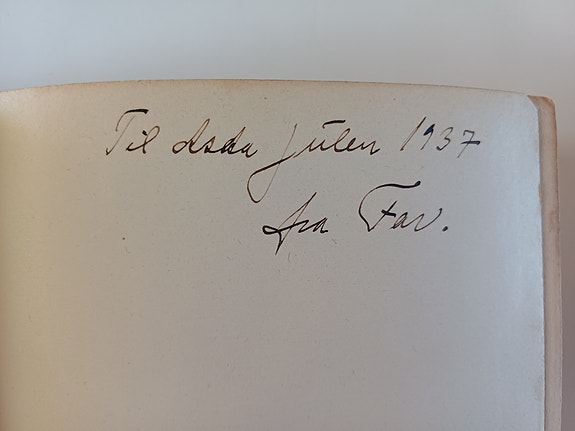 Til Asda Julen 1937
fra Far.